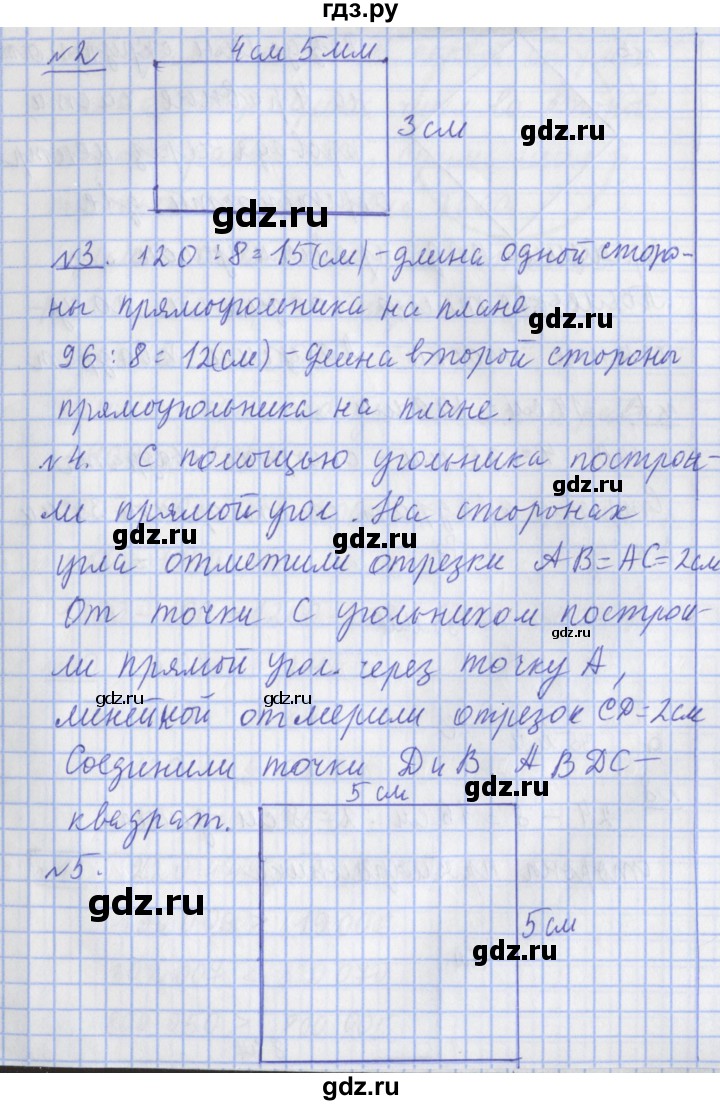 гдз.ру
№2
4см 5мм
3см
gdz.ru
gdz.ru
№3. 120 : 8 = 15(см) - длина одной сторо-
ны прямоугольника на плане
gdz.ru
96 : 8 = 12(см) - длина второй стороны
прямоугольника на плане.
№4. С помощью угольника построи-
ли прямой угол. На сторонах
gdz.ru
gdz.ru
угла отметили отрезки AB=AC=2см
От точки С угольником построи-
gdz.ru
ли прямой угол. через точку А,
gdz.ru
gdz.ru
линейкой отмерили отрезок CD=2см
Соединили точки D и B ABDC-
gdz.ru
5 см
квадрат.
№5.
gdz.ru
5см
gdz.ru
gdz.ru